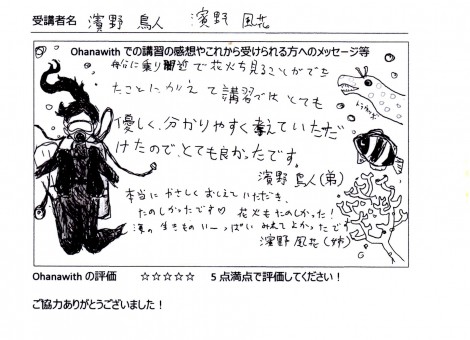 受講者名 濱野 鳥人 濱野 風花
Ohanawith での講習の感想やこれから受けられる方へのメッセージ等
船に乗り間近で花火も見ることができ
たことにくわえて講習ではとても
優しく、分かりやすく教えていただ
けたので、とても良かったです。
濱野 鳥人(弟)
本当にやさしくおしえていただき、
たのしかったです♡ 花火もたのしかった!
海の生きものいーっぱいみえてよかったです
濱野 風花(姉)
Ohanawith の評価 ☆☆☆☆☆ 5 点満点で評価してください!
ご協力ありがとうございました!